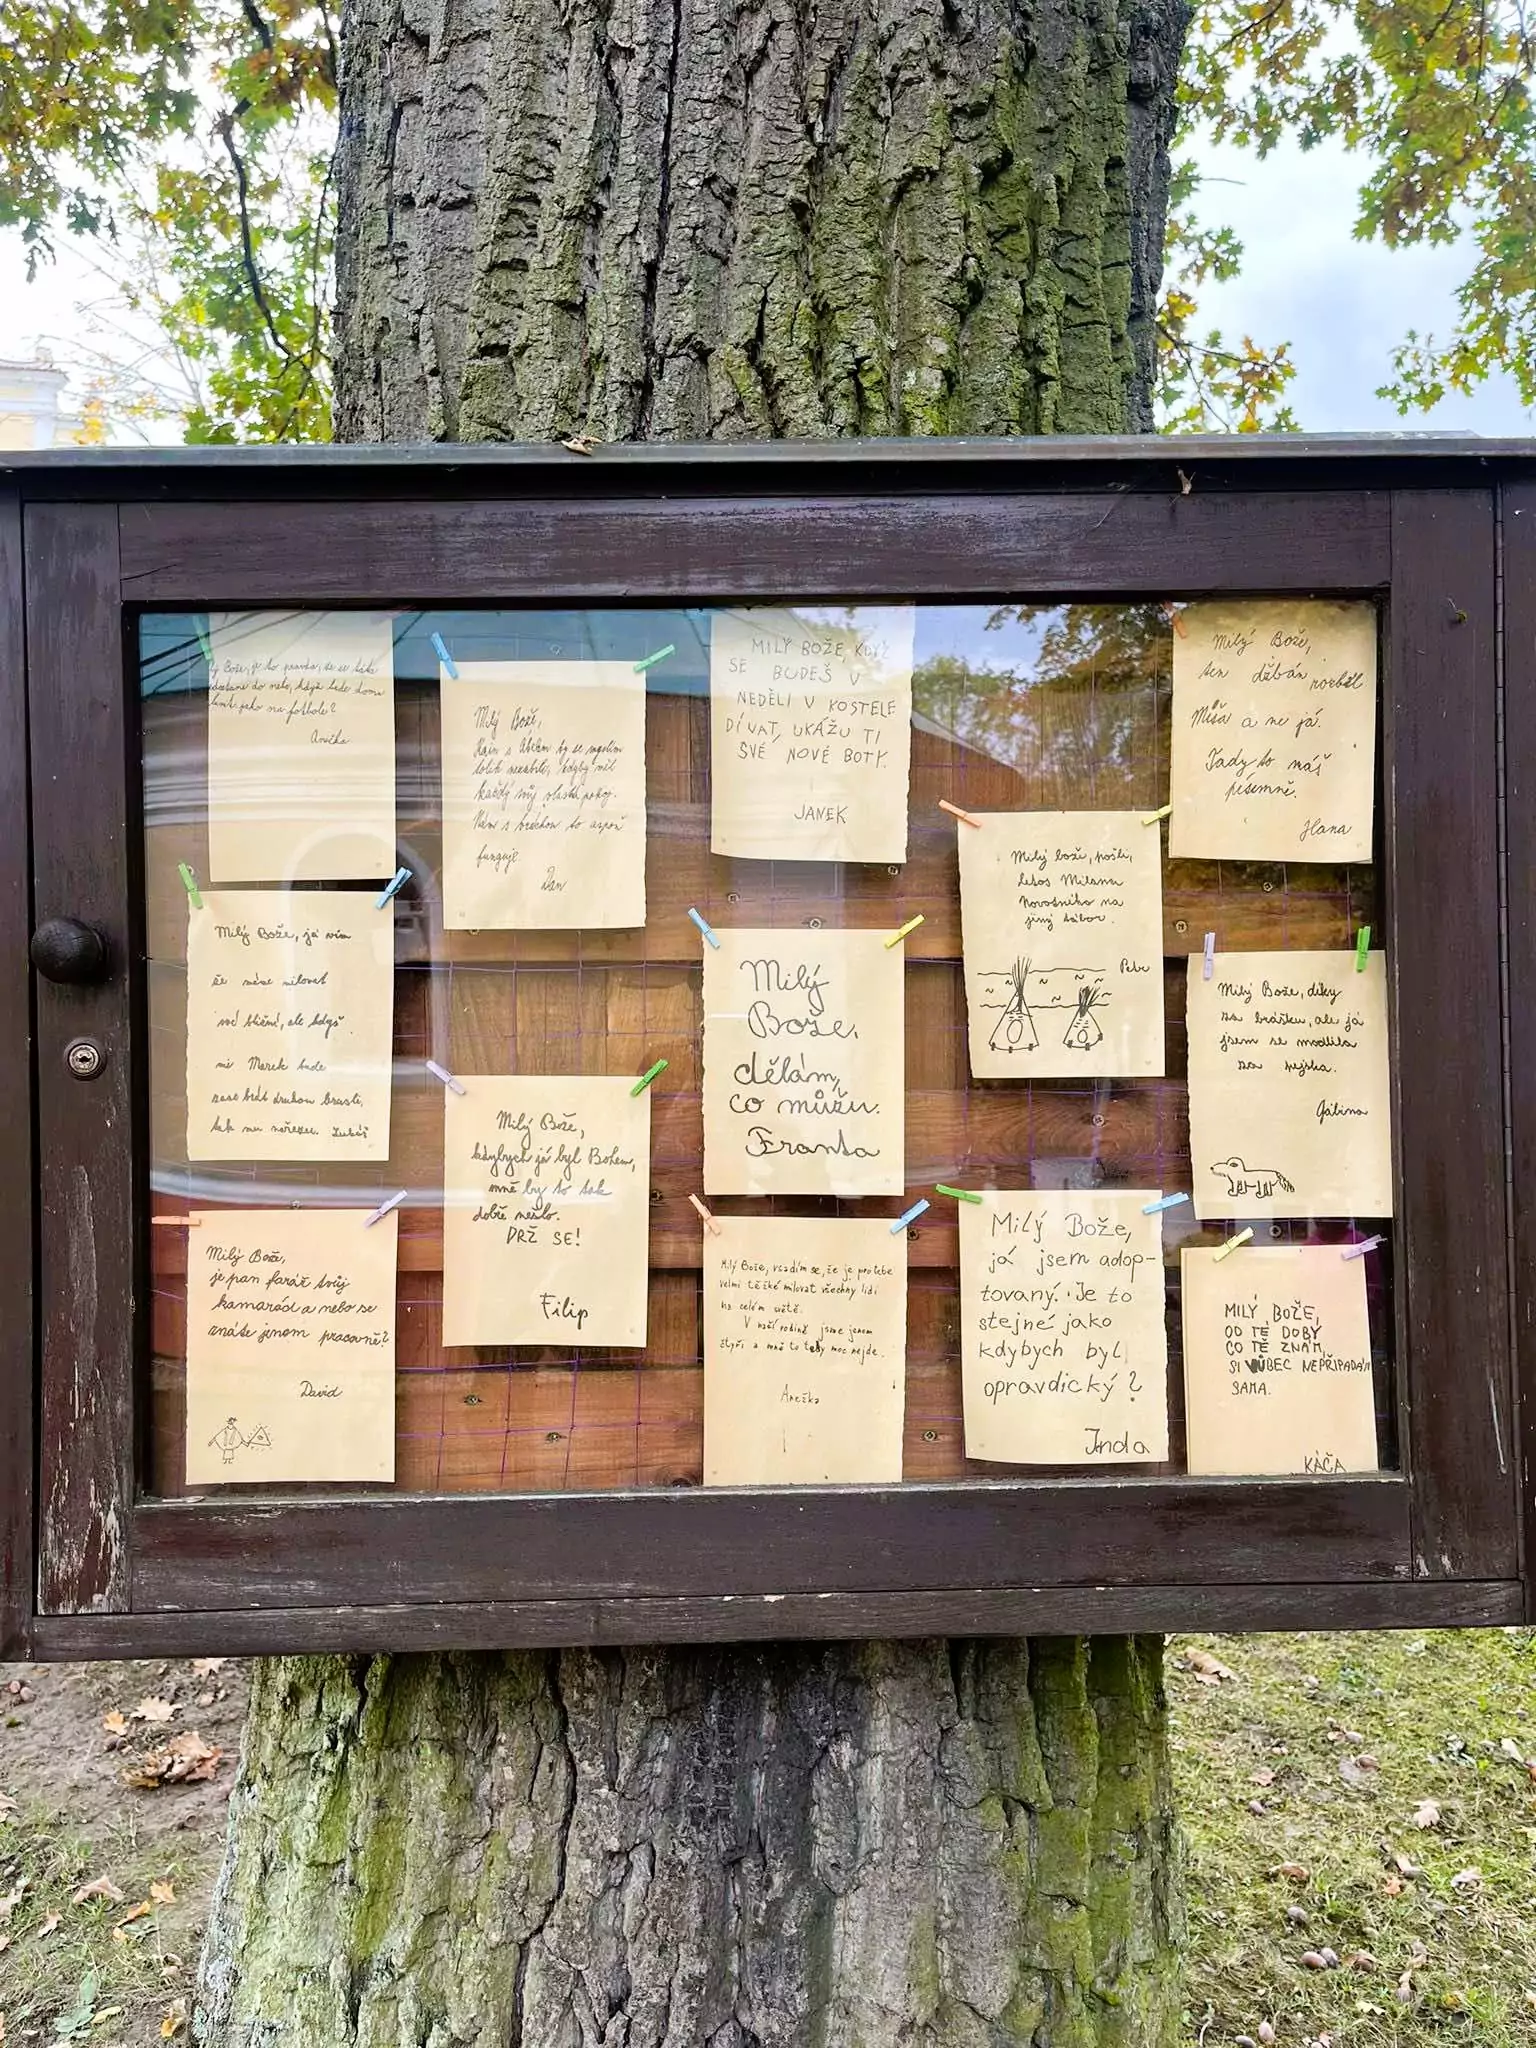 Bože, je to pravda, že se také
dostane do nebe, když bude doma
jako na fotbale?
Anežka
Milý Bože,
Kain s Ábelem by se
tolik nezabili, kdyby měl
každý svůj vlastní pokoj.
Nám s bráchou to aspoň
funguje.
Dan
MILÝ BOŽE, KDYŽ
SE BUDEŠ V
NEDĚLI V KOSTELE
DÍVAT, UKÁŽU TI
SVÉ NOVÉ BOTY.
JANEK
Milý Bože,
ten džbán rozbil
Míša a ne já.
Tady to máš
písemně.
Hana
Milý Bože, já vím
že máme milovat
své bližní, ale když
mi Marek bude
zase brát druhou brusli,
tak mu nařežu. Luboš
Milý
Bože,
dělám,
co můžu.
Franta
Milý bože, pošli,
letos Milana
Novotného na
jiný tábor.
Petr
Milý Bože, díky
za brášku, ale já
jsem se modlila
za pejska.
Gábina
Milý Bože,
kdybych já byl Bohem,
mně by to tak
dobře nešlo.
DRŽ SE!
Filip
Milý Bože,
je pan farář tvůj
kamarád a nebo se
znáte jenom pracovně?
David
Milý Bože, vsadím se, že je pro tebe
velmi těžké milovat všechny lidi
na celém světě.
V naší rodině jsme jenom
čtyři a mně to tedy moc nejde.
Anežka
Milý Bože,
já jsem adop-
tovaný. Je to
stejné jako
kdybych byl
opravdický?
Jnda
MILÝ BOŽE,
OD TÉ DOBY
CO TĚ ZNÁM,
SI VŮBEC NEPŘIPADÁM
SAMA.
KÁČA